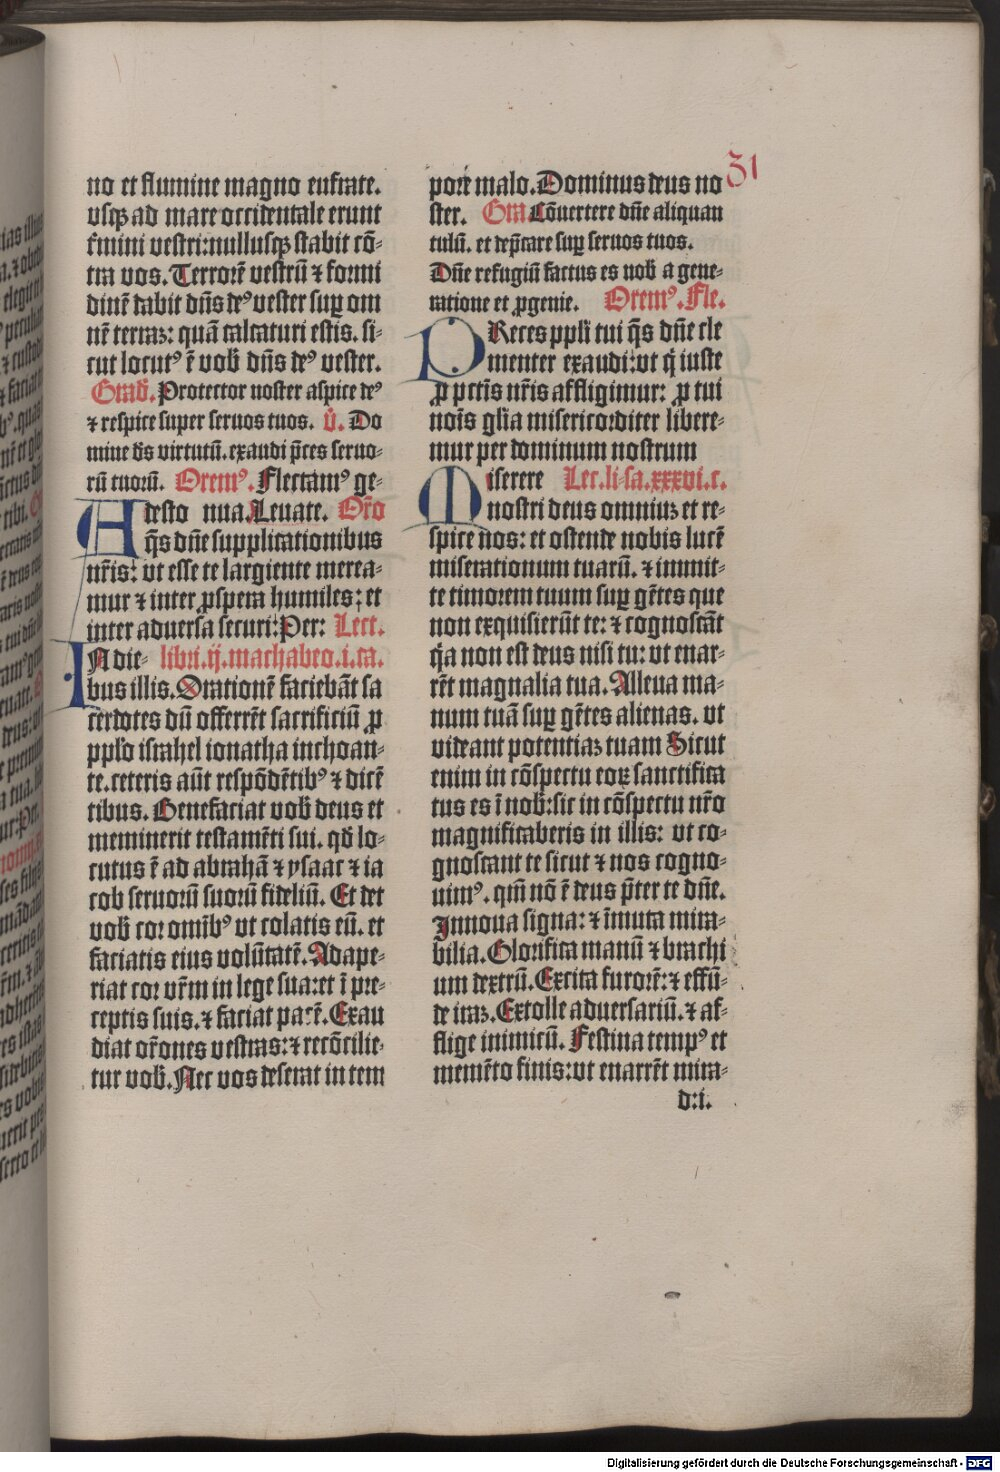 no et flumine magno eufrate.
vsqꝫ ad mare occidentale erunt
t̄mini vestri: nullusqꝫ stabit cō-
tra vos. Terrorē vestrū ⁊ formi
dinē dabit dn̄s deꝰ vester sup̲ om
nē terraꝫ: quā calcaturi estis. si-
cut locutꝰ ē vob̄ dn̄s deꝰ vester.
Grad̄. Protector noster aspice deꝰ
⁊ respice super seruos tuos. v̄. Do
mine d̄s virtutū. exaudi p̄ces seruo-
rū tuorū. Oremꝰ. Flectamꝰ ge-
nua. Leuate. Or̄o
Adesto
q̄s dn̄e supplicationibus
nr̄is: vt esse te largiente merea-
mur ⁊ inter ꝓspera humiles; et
inter aduersa securi: Per: Lect.
IN die- libri. ij. machabeo. i. ca.
bus illis. Orationē faciebāt sa
cerdotes dū offerrēt sacrificiū ꝓ
pplo israhel ionatha inchoan-
te. ceteris aūt respōdētibꝰ ⁊ dicē
tibus. Benefaciat vob̄ deus et
meminerit testamēti sui. qd̄ lo-
cutus ē ad abrahā ⁊ ysaac ⁊ ia
cob seruorū suorū fideliū. Et det
vob̄ cor omībꝰ vt colatis eū. et
faciatis eius volūtatē. Adape-
riat cor vr̄m in lege sua: et ī pre-
ceptis suis. ⁊ faciat pacē. Exau
diat or̄ones vestras: ⁊ recōcilie-
tur vob̄. Nec vos deserat in tem
31
porē malo. Dominus deus no
ster. Gra Cōuertere dn̄e aliquan
tulū. et dep̄care sup̲ seruos tuos.
Dn̄e refugiū factus es nob̄ a gene-
ratione et ꝓgenie. Oremꝰ. Fle.
PReces ppli tui q̄s dn̄e cle
menter exaudi: vt q̄ iuste
ꝓ pctīs nr̄is affligimur: ꝓ tui
noīs gl̄ia misericorditer libere-
mur per dominum nostrum
Miserere Lec. li. Isa. xxxvi. c.
nostri deus omniuꝫ et re-
spice nos: et ostende nobis lucē
miserationum tuarū. ⁊ immit-
te timorem tuum sup̲ gētes que
non exquisierūt te: ⁊ cognoscāt
q̄a non est deus nisi tu: vt enar-
rēt magnalia tua. Alleua ma-
num tuā sup̲ gētes alienas. vt
videant potentiaꝫ tuam Sicut
enim in cōspectu eoꝝ sanctifica
tus es ī nob̄: sic in cōspectu nr̄o
magnificaberis in illis: vt co-
gnoscant te sicut ⁊ nos cogno-
uimꝰ. qm̄ nō ē deus p̄ter te dn̄e.
Innoua signa: ⁊ īmuta mira-
bilia. Glorifica manū ⁊ brachi
um dextrū. Excita furorē: ⁊ effū-
de iraꝫ. Extolle aduersariū. ⁊ af-
flige inimicū. Festina tempꝰ et
memēto finis: vt enarrēt mira-
d: i.
Digitalisierung gefördert durch die Deutsche Forschungsgemeinschaft - DFG